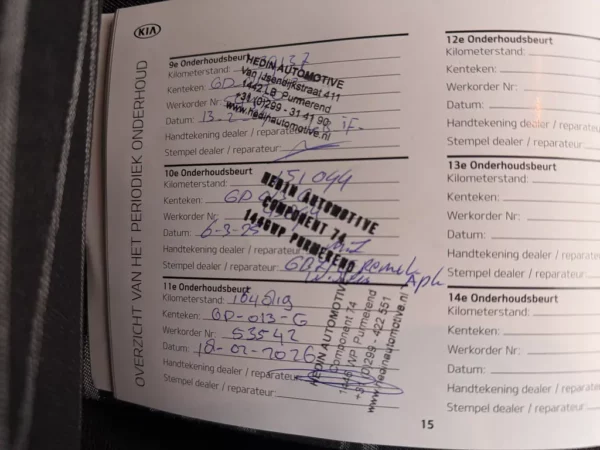 KIA
OVERZICHT VAN HET PERIODIEK ONDERHOUD
9e Onderhoudsbeurt
Kilometerstand:
Kenteken: GD
Werkorder Nr:
Datum: 13-2
Handtekening dealer / reparateur:
Stempel dealer / reparateur:
HEDIN AUTOMOTIVE
Van IJsendijkstraat 411
1442 LB Purmerend
+31 (0)299 - 31 41 90
www.hedinautomotive.nl
10e Onderhoudsbeurt
Kilometerstand: 151044
Kenteken: GD
Werkorder Nr:
Datum: 6-3-25
Handtekening dealer / reparateur:
Stempel dealer / reparateur:
HEDIN AUTOMOTIVE
COMPONENT 74
1446WP PURMEREND
11e Onderhoudsbeurt
Kilometerstand: 164819
Kenteken: GD-013-G
Werkorder Nr: 53542
Datum: 18-02-2026
Handtekening dealer / reparateur:
Stempel dealer / reparateur:
HEDIN AUTOMOTIVE
Component 74
1446 WP Purmerend
+31 (0)299 - 422 551
www.hedinautomotive.nl
12e Onderhoudsbeurt
Kilometerstand:
Kenteken:
Werkorder Nr:
Datum:
Handtekening dealer / reparateu
Stempel dealer / reparateur:
13e Onderhoudsbeurt
Kilometerstand:
Kenteken:
Werkorder Nr:
Datum:
Handtekening dealer / reparate
Stempel dealer / reparateur:
14e Onderhoudsbeurt
Kilometerstand:
Kenteken:
Werkorder Nr:
Datum:
Handtekening dealer / reparat
Stempel dealer / reparateur:
15